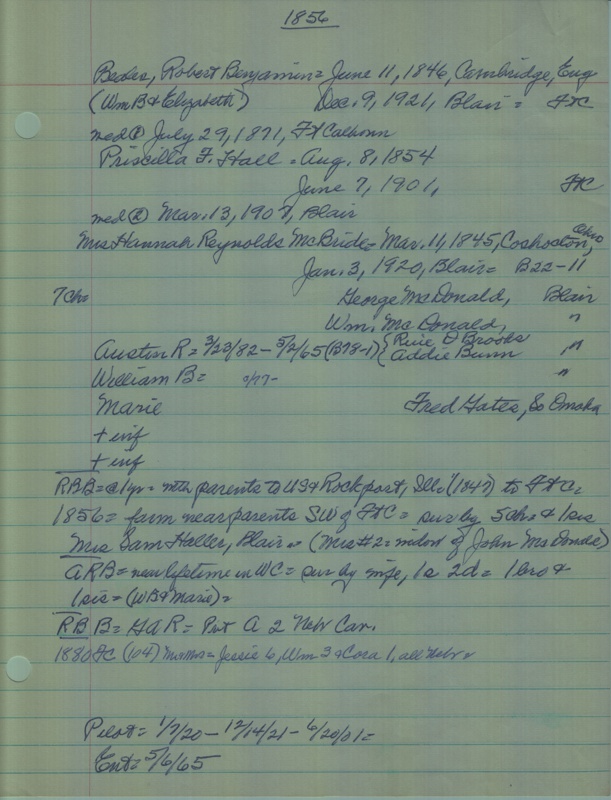 1856
Beales, Robert Benjamin = June 11, 1846, Cambridge, Eng
(Wm B & Elizabeth) Dec. 9, 1921, Blair = FtC
med ① July 29, 1871, Ft Calhoun
Priscilla F. Hall = Aug. 8, 1854
June 7, 1901, FtC
med ② Mar. 13, 1907, Blair
Mrs Hannah Reynolds McBride = Mar. 11, 1845, Coshocton, Ohio
Jan. 3, 1920, Blair = B22-11
7 Ch = George McDonald, Blair
Wm. McDonald, "
Austin R = 3/23/82 - 5/2/65 (B78-1) { Ruie D Brooks
Addie Bunn "
William B = "
Marie Fred Gates, So Omaha
+ inf
+ inf
RBB = @ 1 yr = with parents to USA Rockport, Ill. (1847) to FtC =
1856 = farm near parents SW of FtC = sur by 5 ch & 1 sis
Mrs Sam Haller, Blair = (Mrs #2 = widow of John McDonald)
ARB = near lifetime in WC = sur by wife, 1s 2d = 1 bro &
1 sis = (WB & Marie) =
RBB = GAR = Pvt A 2 Nebr Cav.
1880 FtC (104) = Jessie 6, Wm 3 & Cora 1, all Nebr =
Pilot = 1/7/20 - 12/14/21 - 6/20/01 =
Ent = 5/6/65